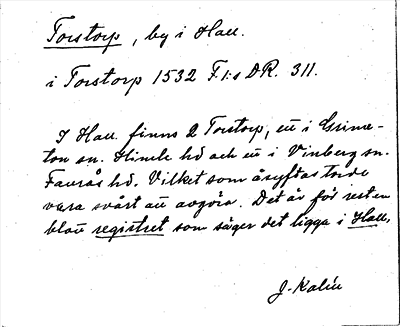 Torstorp, by i Hall.
i Torstorp 1532 F1:s DR. 311.
I Hall. finns 2 Torstorp, ett i Grime-
ton sn. Himle hd och ett i Vinberg sn.
Faurås hd. Vilket som åsyftas torde
vara svårt att avgöra. Det är för resten
blott registret som säger det ligga i Hall,
J. Kalén